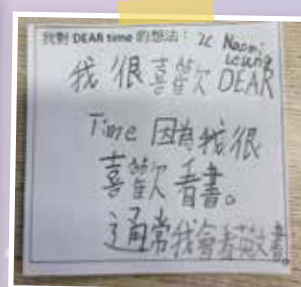 我對 DEAR time 的想法： 2C Naomi Leung
我很喜歡 DEAR
Time 因為我很
喜歡看書。
通常我會看英文書。